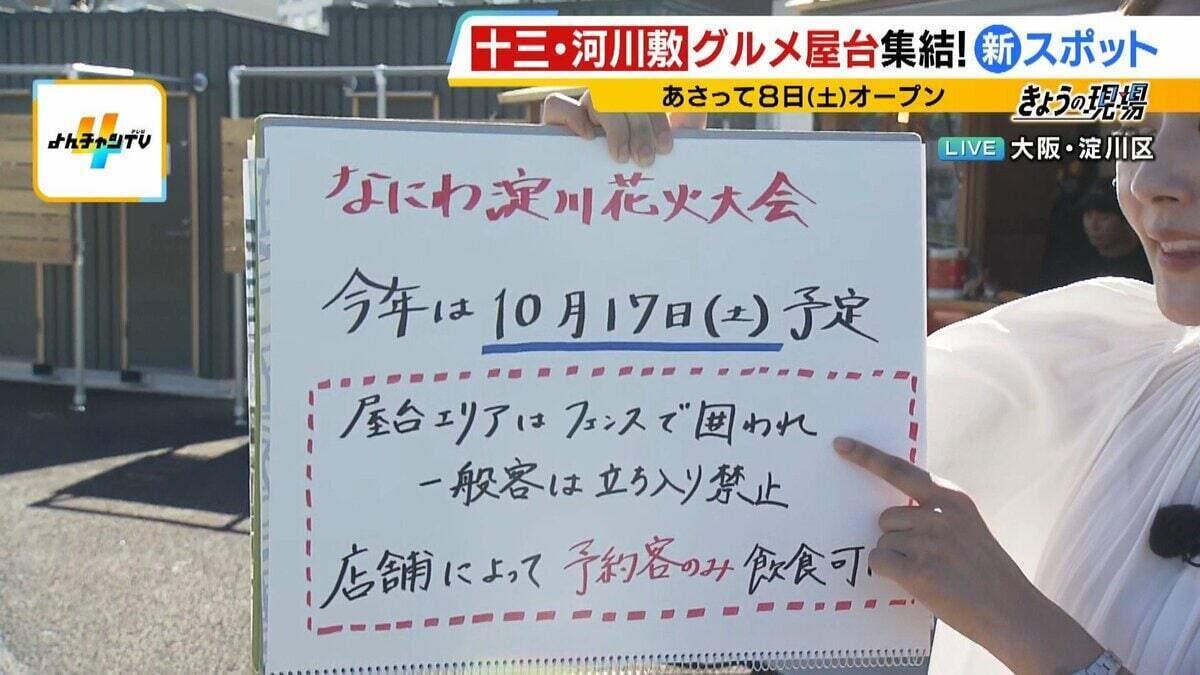 十三・河川敷グルメ屋台集結!新スポット
あさって8日(土)オープン
きょうの現場
LIVE 大阪・淀川区
よんチャンTV
テレビ
4
なにわ淀川花火大会
今年は10月17日(土)予定
屋台エリアはフェンスで囲われ
一般客は立ち入り禁止
店舗によって予約客のみ飲食可